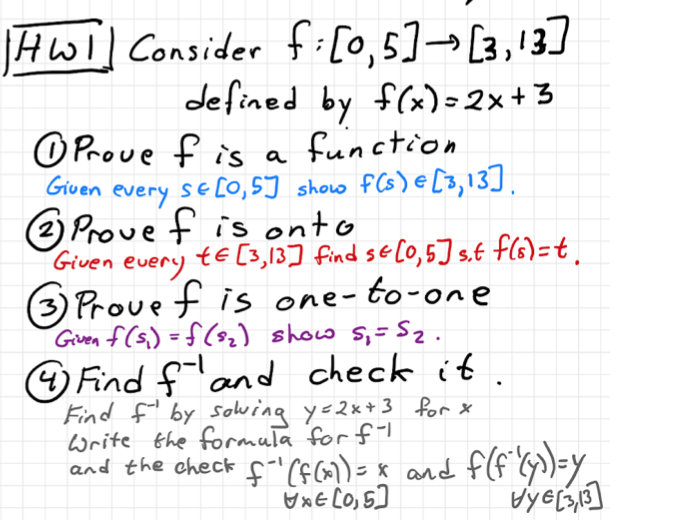 HW1 Consider f:[0,5]→[3,13]
defined by f(x)=2x+3
① Prove f is a function
Given every s∈[0,5] show f(s)∈[3,13].
② Prove f is onto
Given every t∈[3,13] find s∈[0,5] s.t f(s)=t.
③ Prove f is one-to-one
Given f(s₁)=f(s₂) show s₁=s₂.
④ Find f⁻¹ and check it.
Find f⁻¹ by solving y=2x+3 for x
Write the formula for f⁻¹
and the check f⁻¹(f(x))=x and f(f⁻¹(y))=y
∀x∈[0,5] ∀y∈[3,13]